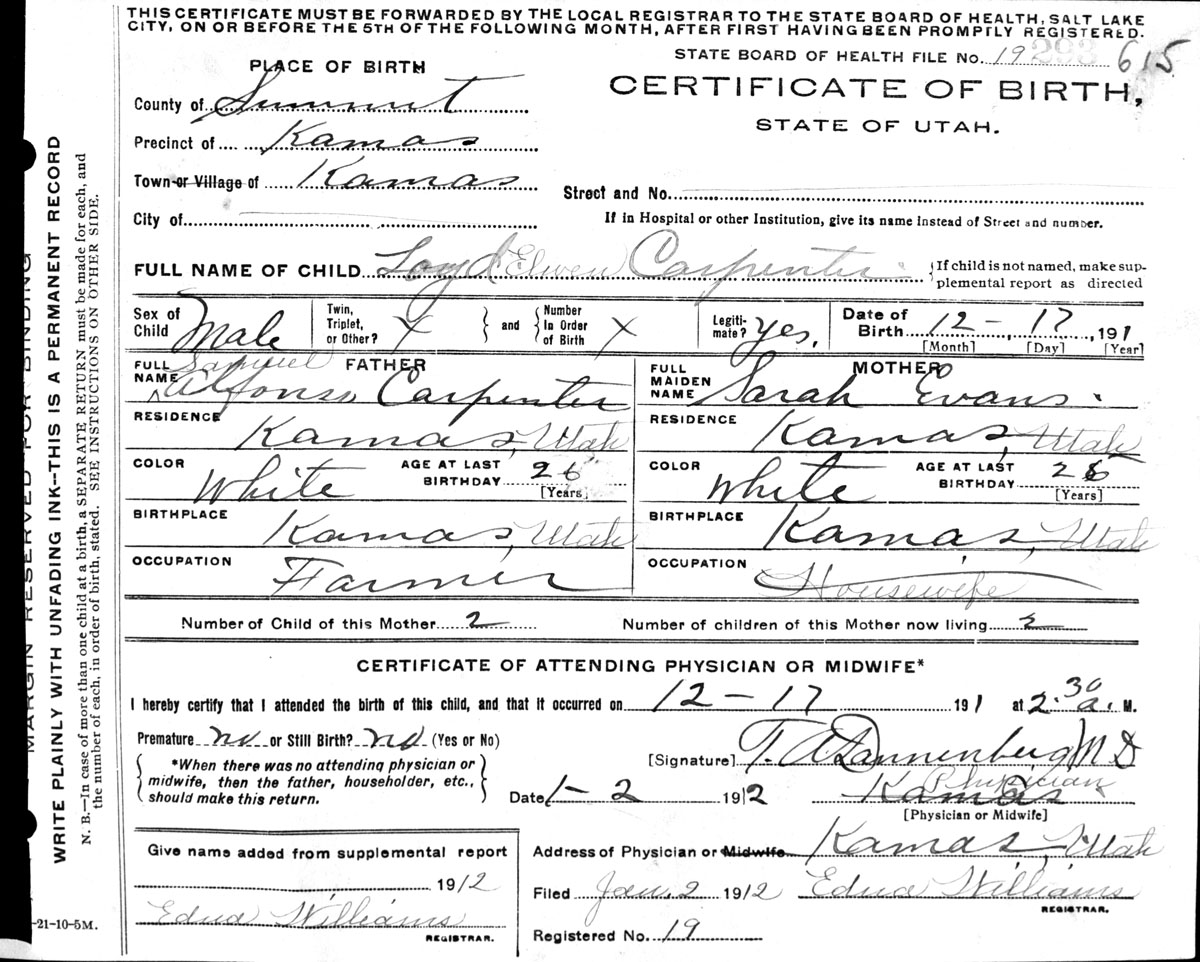 THIS CERTIFICATE MUST BE FORWARDED BY THE LOCAL REGISTRAR TO THE STATE BOARD OF HEALTH, SALT LAKE
CITY, ON OR BEFORE THE 5TH OF THE FOLLOWING MONTH, AFTER FIRST HAVING BEEN PROMPTLY REGISTERED.
STATE BOARD OF HEALTH FILE No. 19 293 615
PLACE OF BIRTH
CERTIFICATE OF BIRTH,
STATE OF UTAH.
County of Summit
Precinct of Kamas
Town or Village of Kamas
Street and No.
City of
If in Hospital or other Institution, give its name instead of Street and number.
FULL NAME OF CHILD Loyd Elwen Carpenter
If child is not named, make sup-
plemental report as directed
Sex of Child Male
Twin, Triplet, or Other? X
and
Number In Order of Birth X
Legiti-mate? Yes.
Date of Birth 12 - 17, 1911
[Month] [Day] [Year]
FATHER
FULL NAME Samuel Alfonso Carpenter
RESIDENCE Kamas, Utah
COLOR White
AGE AT LAST BIRTHDAY 26
[Years]
BIRTHPLACE Kamas, Utah
OCCUPATION Farmer
MOTHER
FULL MAIDEN NAME Sarah Evans.
RESIDENCE Kamas, Utah
COLOR White
AGE AT LAST BIRTHDAY 26
[Years]
BIRTHPLACE Kamas, Utah
OCCUPATION Housewife
Number of Child of this Mother 2
Number of children of this Mother now living 2
CERTIFICATE OF ATTENDING PHYSICIAN OR MIDWIFE*
I hereby certify that I attended the birth of this child, and that it occurred on 12 - 17 1911 at 2.30 a. M.
Premature no or Still Birth? no (Yes or No)
[Signature] T. A. Dannenberg M D
*When there was no attending physician or
midwife, then the father, householder, etc.,
should make this return.
Date 1 - 2 1912
Kamas Physician
[Physician or Midwife]
Give name added from supplemental report
1912
Edna Williams
REGISTRAR.
Address of Physician or Midwife Kamas, Utah
Filed Jan. 2 1912 Edna Williams
REGISTRAR.
Registered No. 19
MARGIN RESERVED FOR BINDING
WRITE PLAINLY WITH UNFADING INK--THIS IS A PERMANENT RECORD
N. B.—In case of more than one child at a birth, a SEPARATE RETURN must be made for each, and
the number of each, in order of birth, stated. SEE INSTRUCTIONS ON OTHER SIDE.
-21-10-5M.